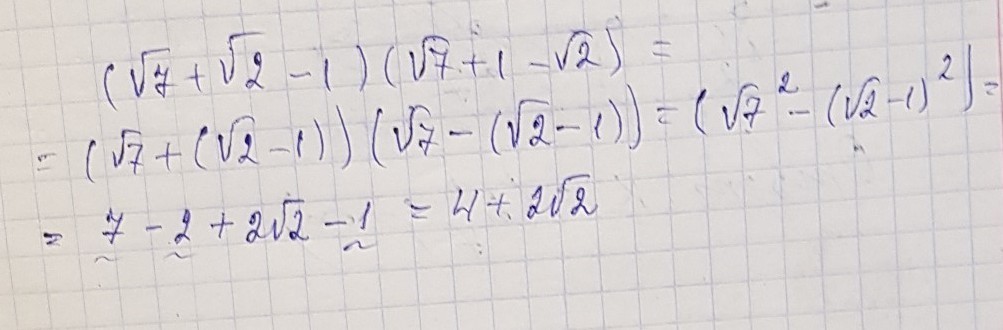 (√7 + √2 - 1)(√7 + 1 - √2) =
= (√7 + (√2 - 1))(√7 - (√2 - 1)) = (√7² - (√2 - 1)²) =
= 7 - 2 + 2√2 - 1 = 4 + 2√2